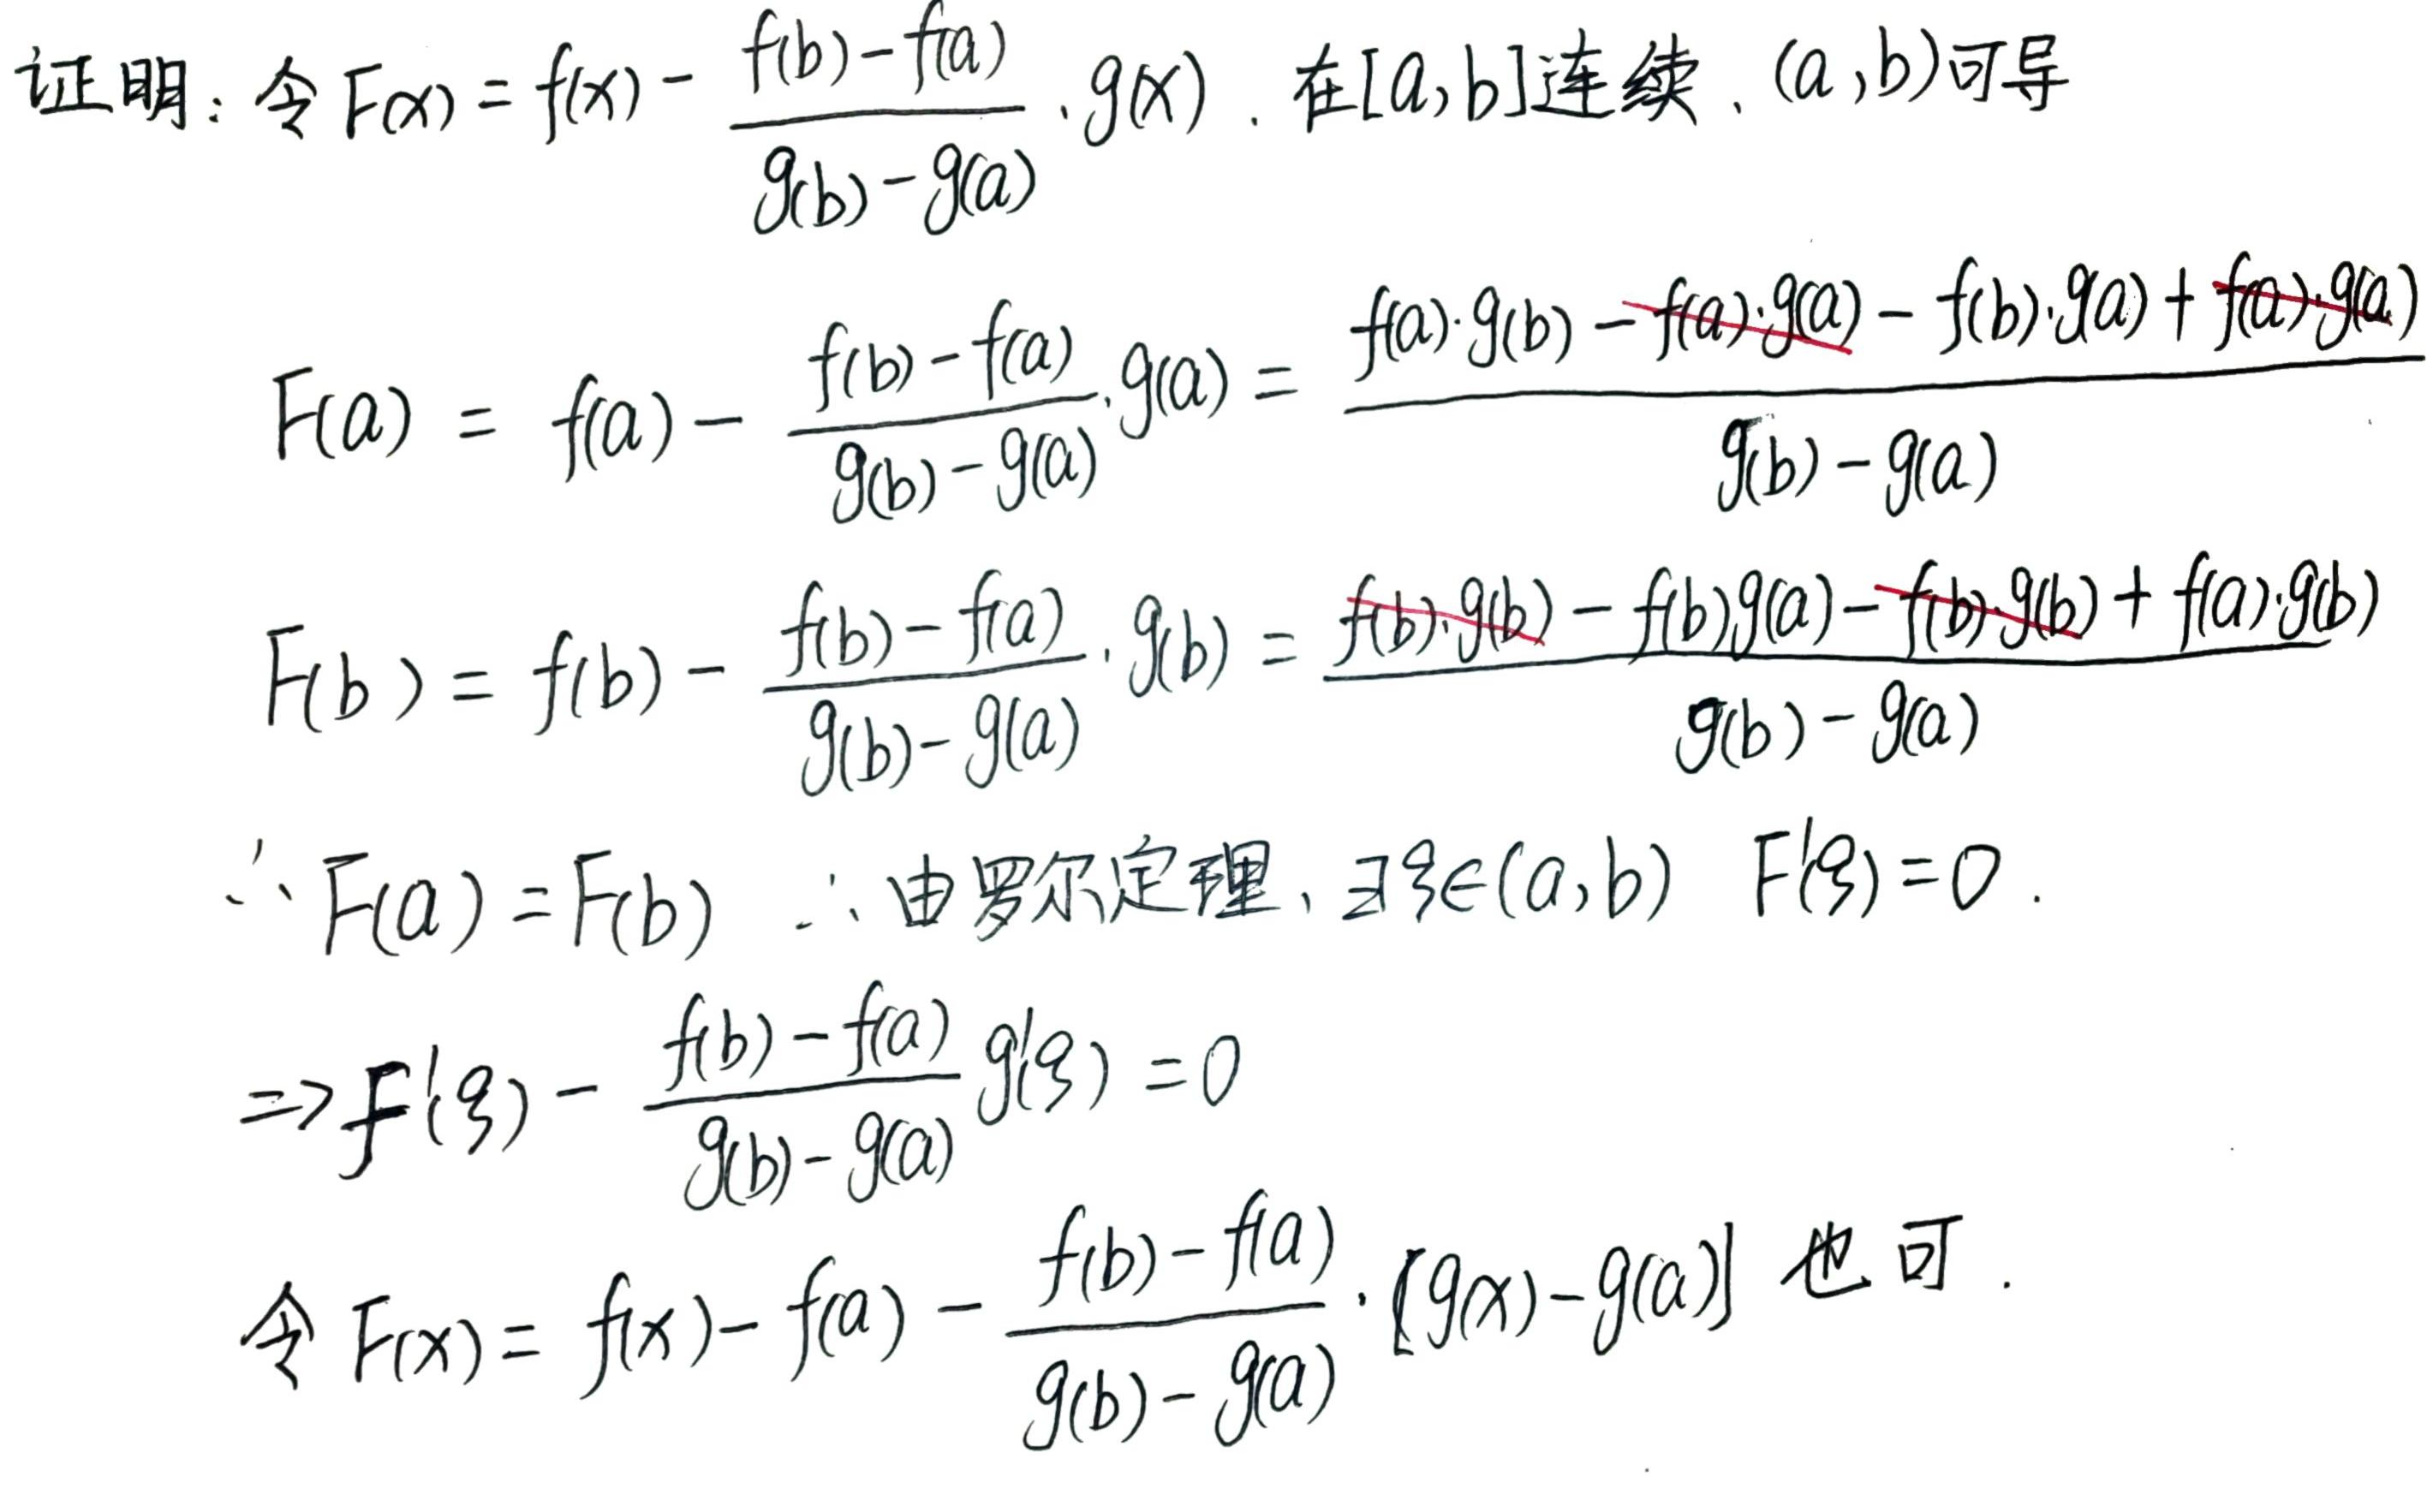 证明：令 F(x) = f(x) - \frac{f(b)-f(a)}{g(b)-g(a)} · g(x) . 在[a,b]连续、(a,b)可导
F(a) = f(a) - \frac{f(b)-f(a)}{g(b)-g(a)} · g(a) = \frac{f(a)·g(b) - f(a)·g(a) - f(b)·g(a) + f(a)·g(a)}{g(b)-g(a)}
F(b) = f(b) - \frac{f(b)-f(a)}{g(b)-g(a)} · g(b) = \frac{f(b)·g(b) - f(b)g(a) - f(b)·g(b) + f(a)·g(b)}{g(b)-g(a)}
∴ F(a) = F(b) ∴ 由罗尔定理、∃ξ∈(a,b) F'(ξ) = 0 .
=> f'(ξ) - \frac{f(b)-f(a)}{g(b)-g(a)} g'(ξ) = 0
令 F(x) = f(x) - f(a) - \frac{f(b)-f(a)}{g(b)-g(a)} · [g(x)-g(a)] 也可 .